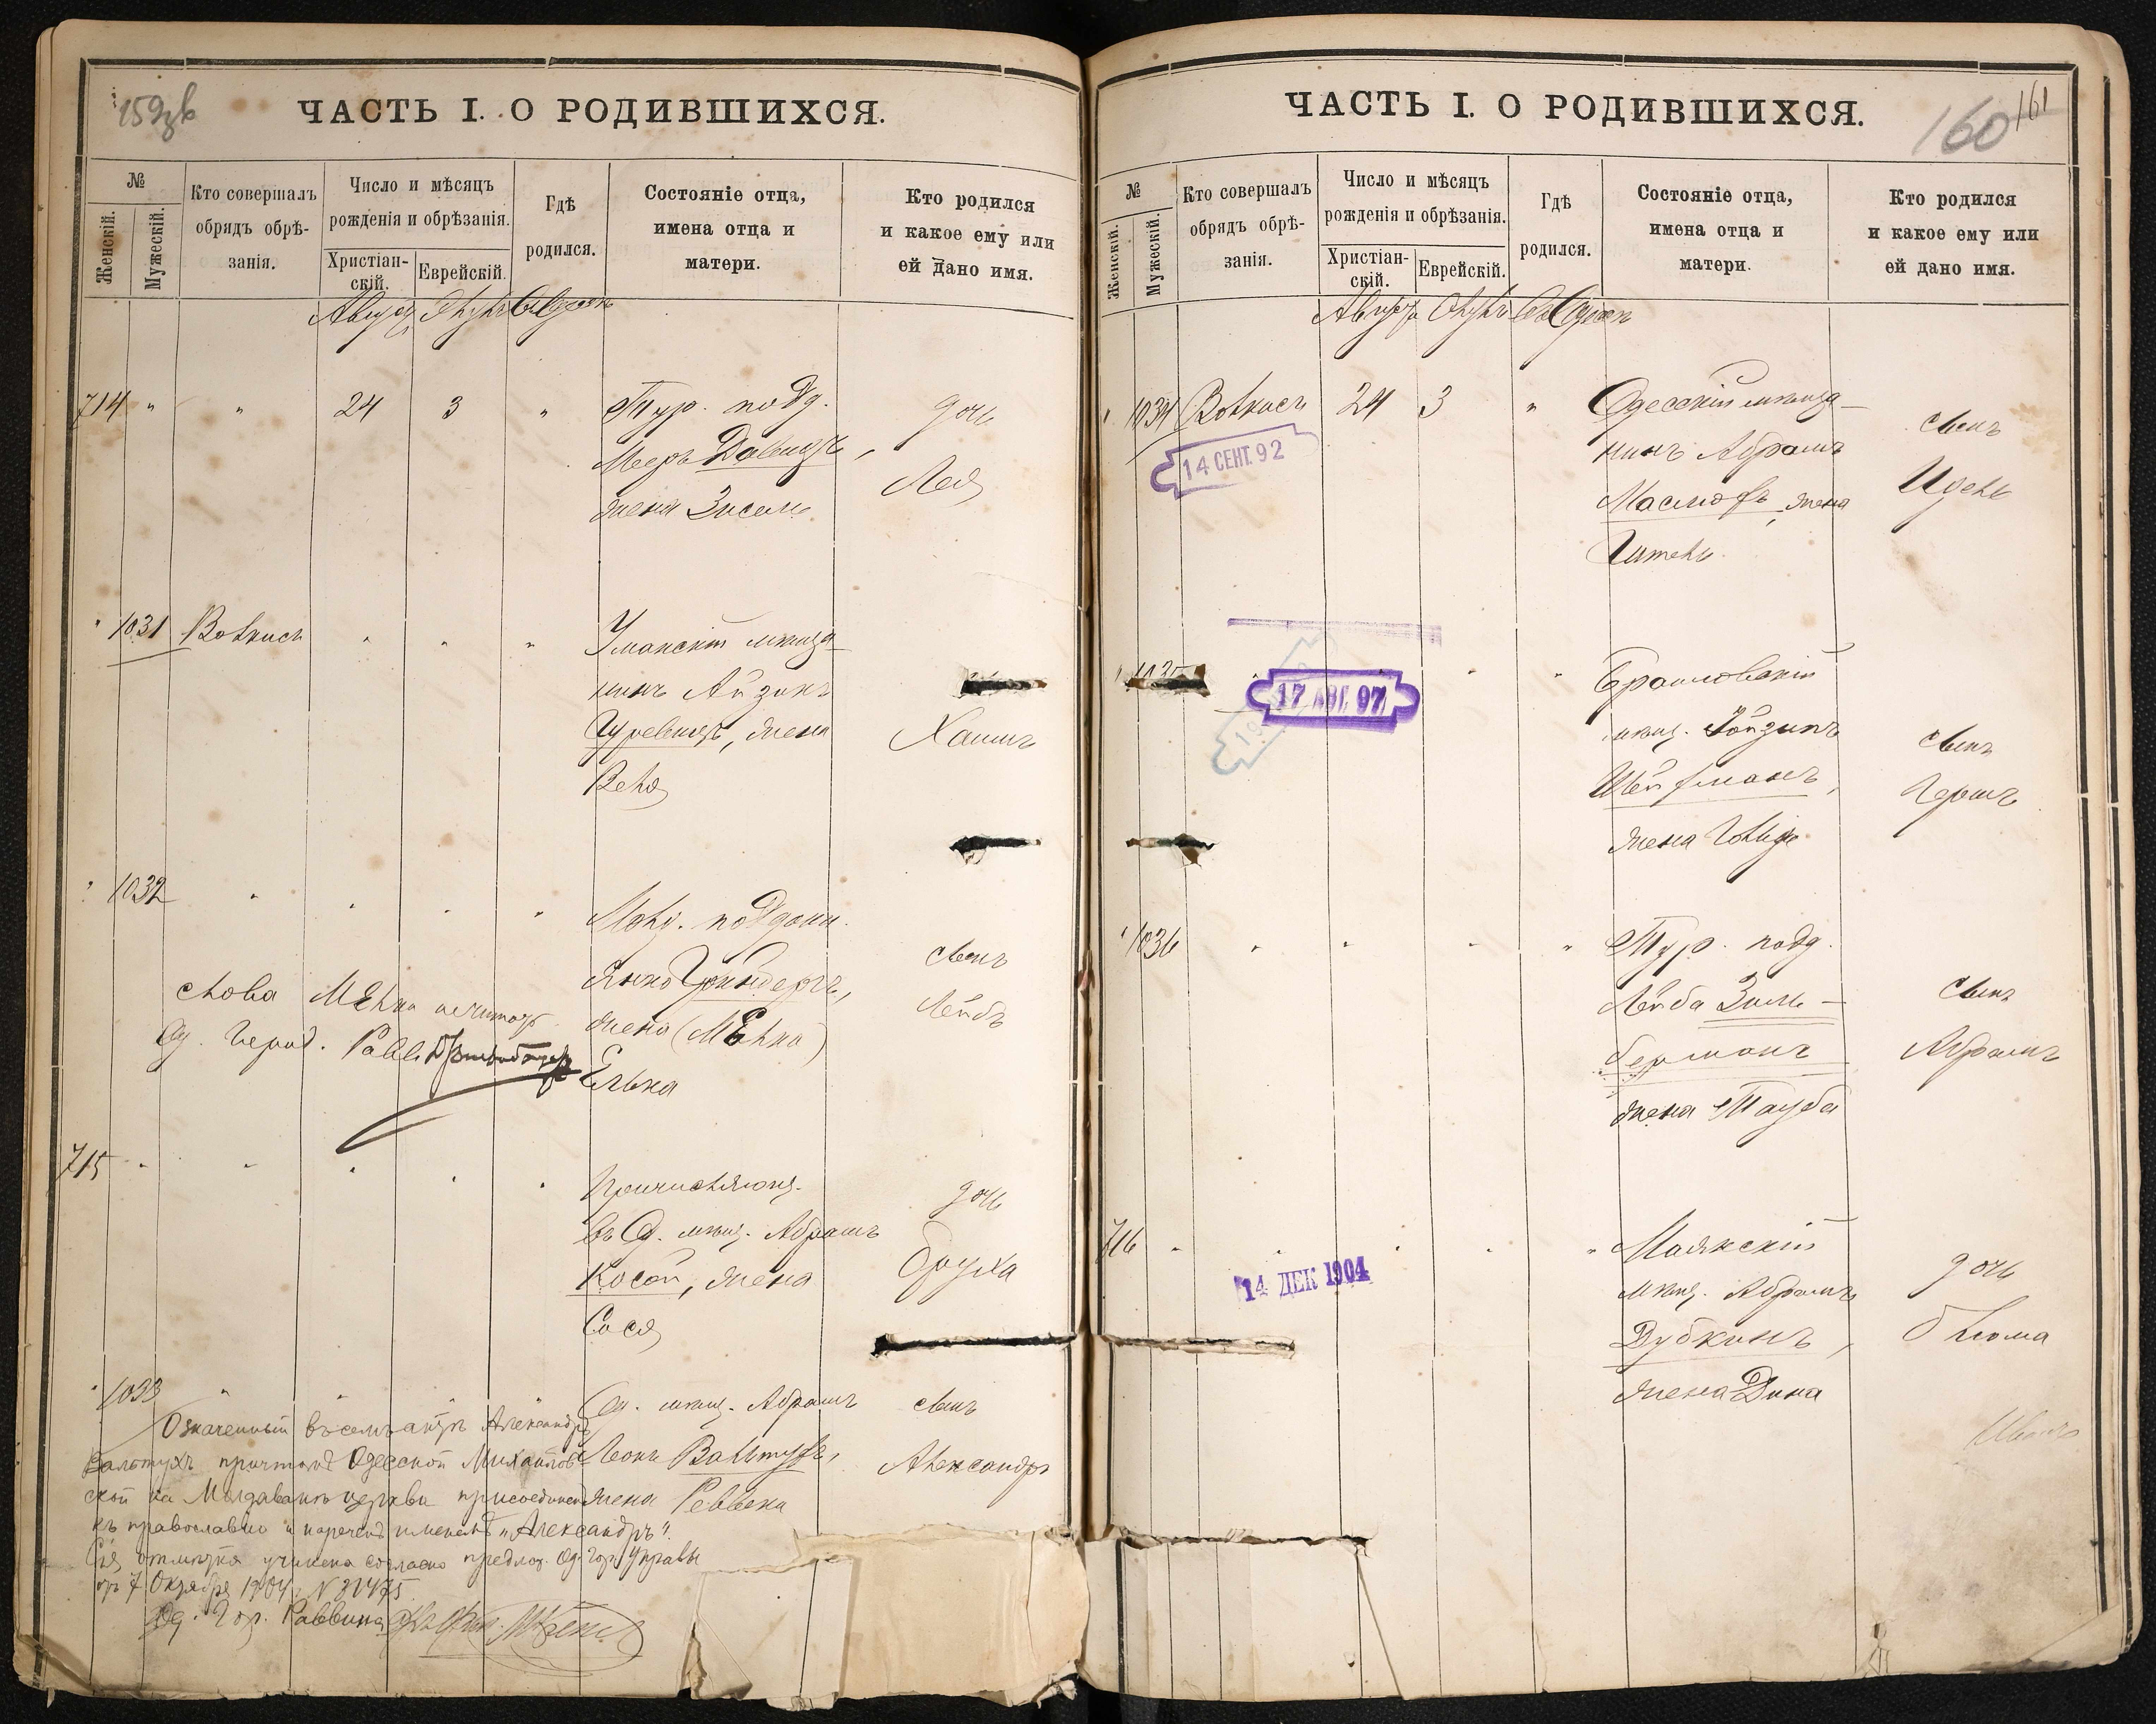 159
ЧАСТЬ I. О РОДИВШИХСЯ.
№
Женскій.
Мужескій.
Кто совершалъ
обрядъ обрѣ-
занія.
Число и мѣсяцъ
рожденія и обрѣзанія.
Христіан-
скій.
Еврейскій.
Гдѣ
родился.
Состояніе отца,
имена отца и
матери.
Кто родился
и какое ему или
ей дано имя.
Августъ Элулъ Въ Одессѣ
714 " " 24 3 " Тур. подд. дочь
Мееръ Давидъ, Лея
жена Зисель
" 1031 Волкисъ " " " Уманскій мѣща-
нинъ Айзикъ
Гуревичъ, жена Хаимъ
Вель
" 1032 " " " " Молд. поддан. сынъ
Янко Гринбергъ, Лейбъ
жена (МЕлка)
Елька
слова МЕлка
Од. Город. Равв.
715 " " " " " Причисляющ. дочь
въ Од. мѣщ. Абрамъ
Косой, жена Бруха
Сося
" 1033 " " " " Од. мѣщ. Абрамъ сынъ
Леонъ Вальтухъ, Александръ
жена Ревекка
Означенный въ семъ актѣ Александръ
Вальтухъ причтомъ Одесской Михайлов-
ской на Молдаванкѣ церкви присоединенъ
къ православію и нареченъ именемъ „Александръ".
Сія отмѣтка учинена согласно предлож. Од. Гор. Управы
отъ 7 Октября 1904 N 21475
Од. Гор. Раввинъ
ЧАСТЬ I. О РОДИВШИХСЯ.
160 161
№
Женскій.
Мужескій.
Кто совершалъ
обрядъ обрѣ-
занія.
Число и мѣсяцъ
рожденія и обрѣзанія.
Христіан-
скій.
Еврейскій.
Гдѣ
родился.
Состояніе отца,
имена отца и
матери.
Кто родился
и какое ему или
ей дано имя.
Августъ Элулъ Въ Одессѣ
" 1034 Волкисъ 24 3 " Одесскій мѣща- сынъ
нинъ Абрамъ
14 СЕНТ. 92
Масловъ, жена Идель
Гитель
" 1035 " " " " Браиловскій
17 АВГ. 97
мѣщ. Лойзипъ сынъ
Шейфманъ, Гершъ
жена Голда
" 1036 " " " " Тур. подд.
Лейба Зиль- сынъ
берманъ Абрамъ
жена Тауба
716 " " " " " Маякскій дочь
14 ДЕК 1904
мѣщ. Абрамъ
Дубкинъ, Блюма
жена Дина